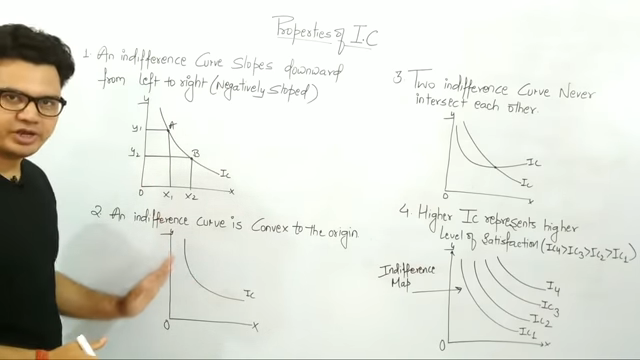 Properties of I.C
1. An indifference Curve Slopes downward
from left to right (Negatively Sloped)
y
y1
A
y2
B
Ic
0
x1
x2
x
2. An indifference curve is Convex to the origin.
y
Ic
0
x
3. Two indifference Curve Never
intersect each other.
y
Ic
Ic
0
x
4. Higher Ic represents higher
Level of Satisfaction (Ic4>Ic3>Ic2>Ic1)
Indifference
Map
y
I4
Ic3
Ic2
Ic1
0
x